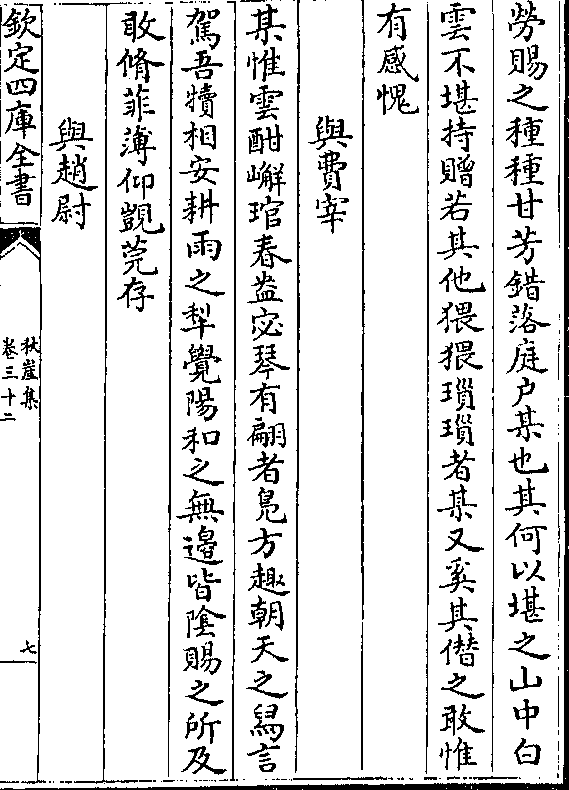 勞賜之種種甘芳錯落庭户某也其何以堪之山中白
雲不堪持贈若其他猥猥瑣瑣者某又奚其僭之敢惟
有感愧
與費宰
某惟雲酣嶰琯春盎宓琴有翩者鳧方趣朝天之舄言
駕吾犢相安耕雨之犁覺陽和之無邊皆陰賜之所及
敢脩菲薄仰覬莞存
與趙尉
欽定四庫全書
秋崖集
卷三十二
七